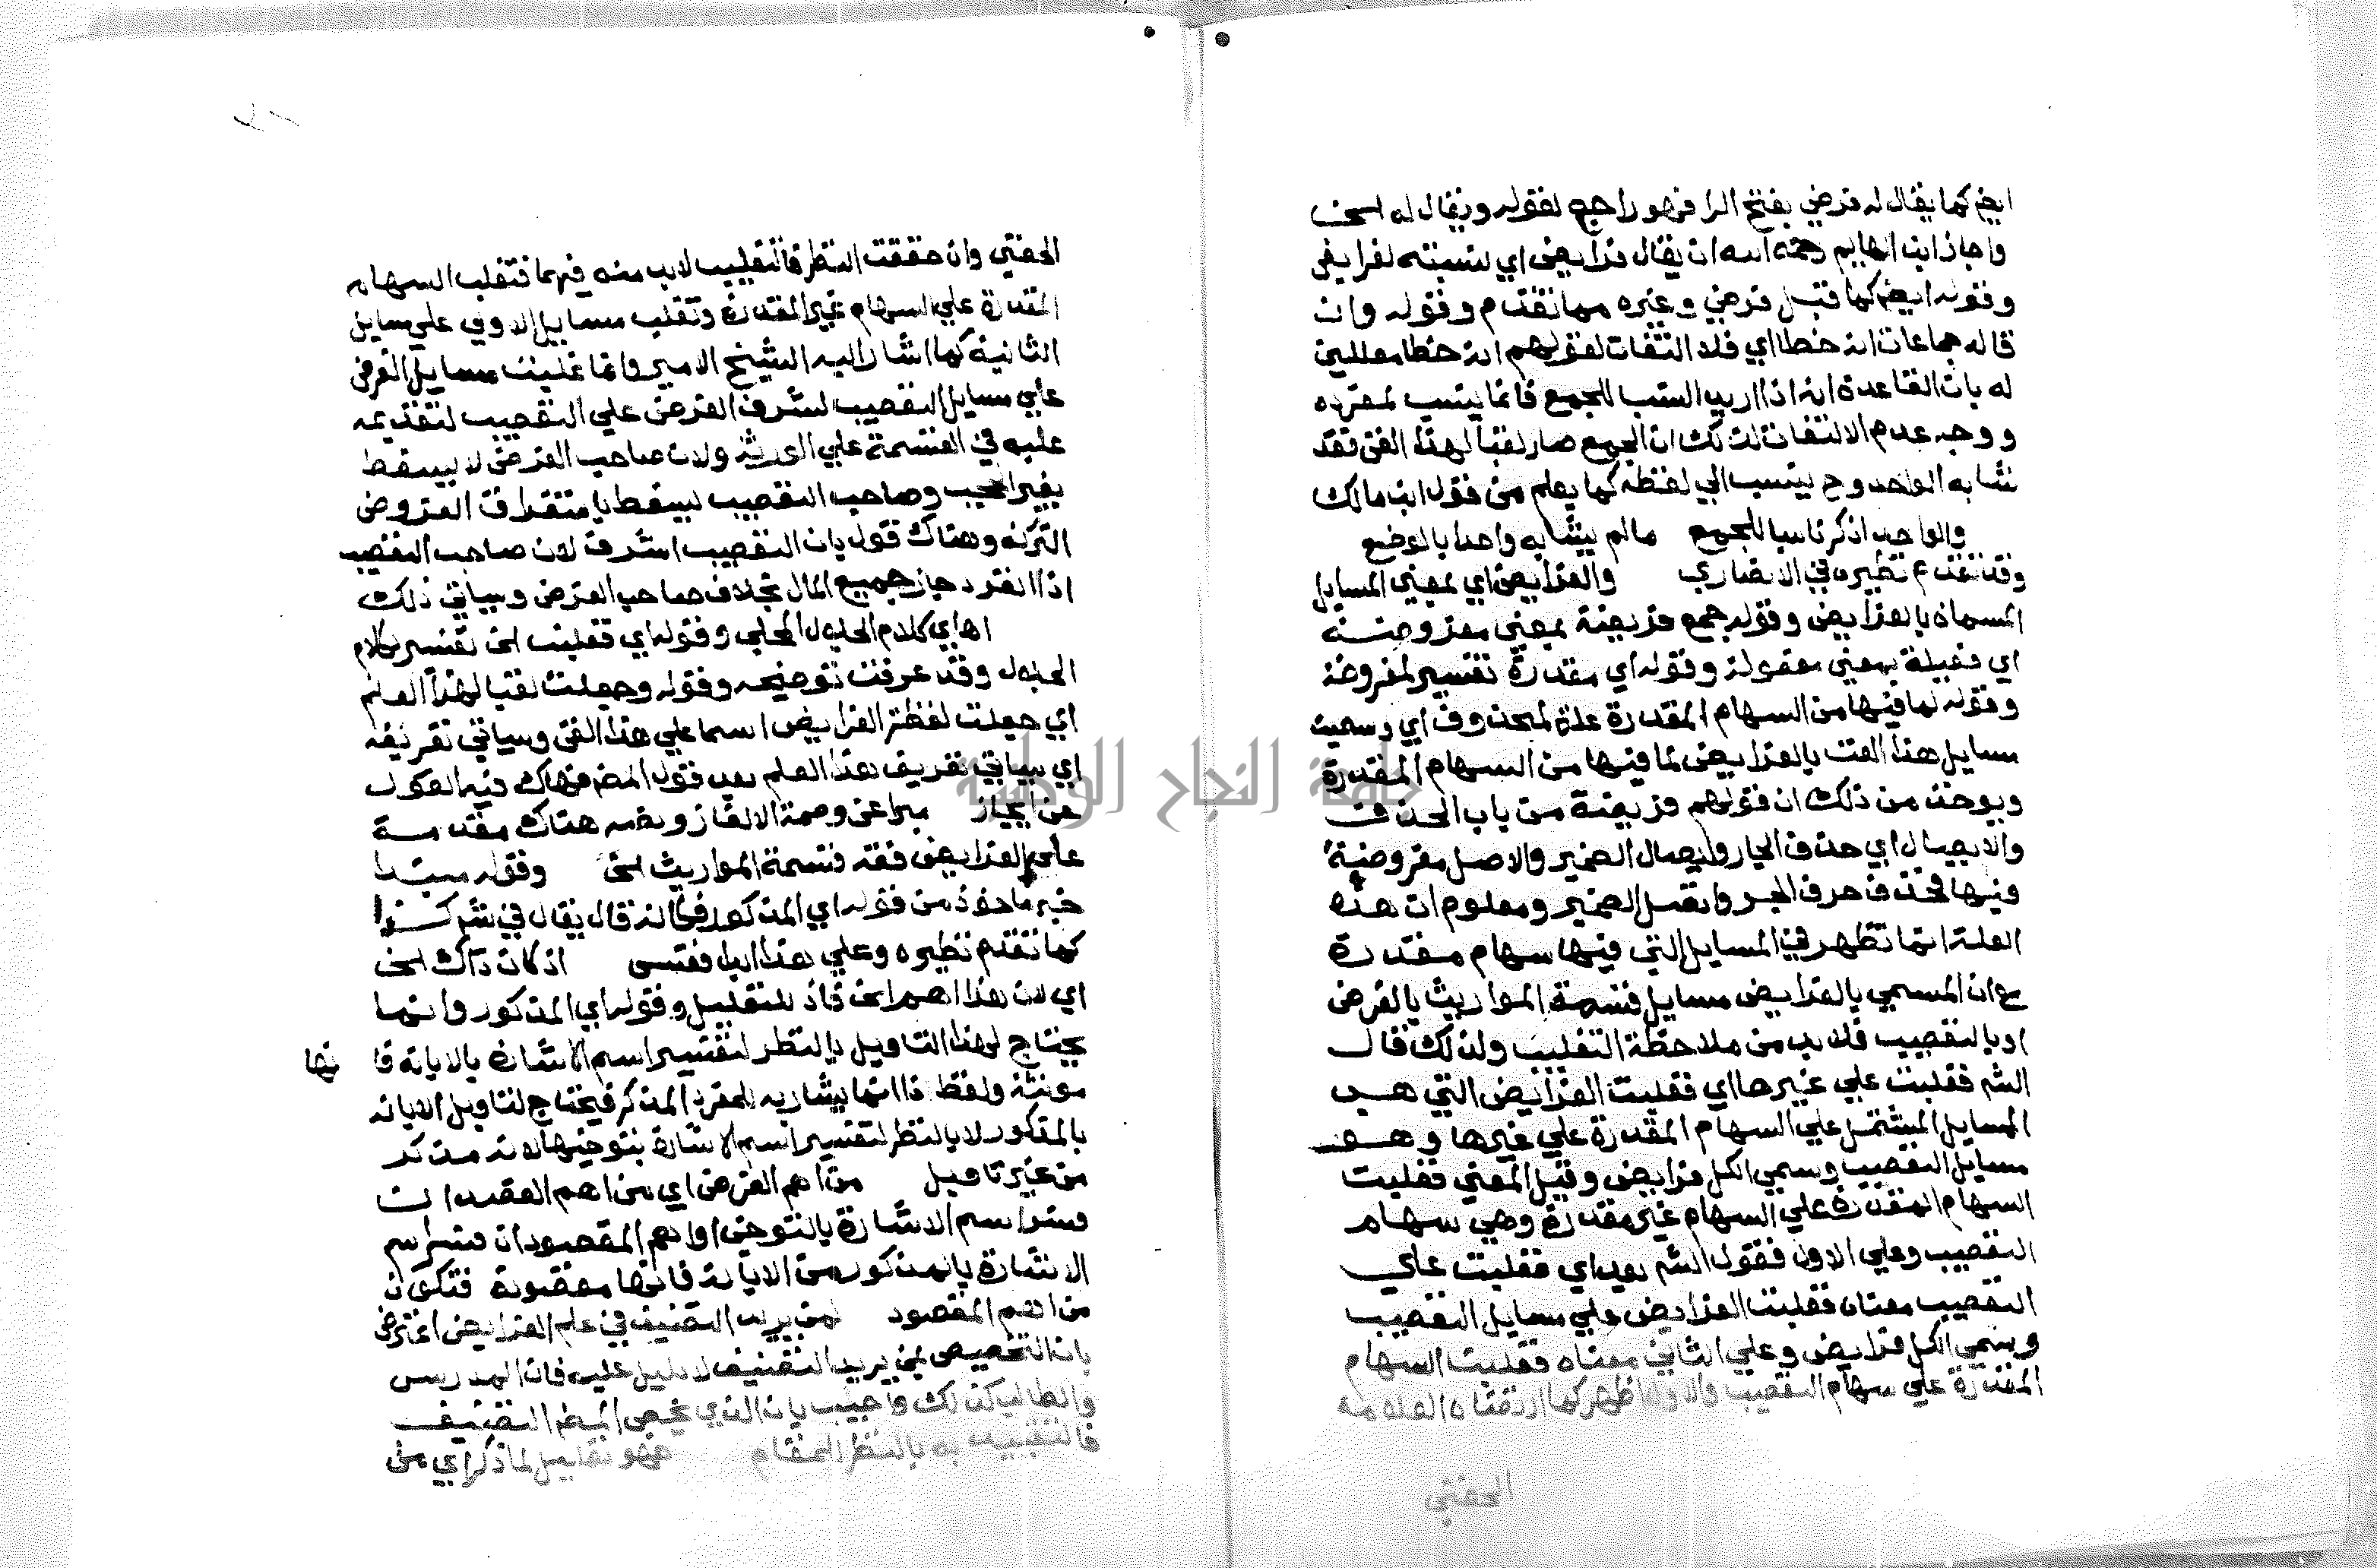 ايضا كما يقال له فرضي بفتح الرا فهو راجع لقوله ويقال له الخ
واجاز ابن الهايم رحمه الله ان يقال فرايضي اي لنسبته لفرايض
وقوله ايضا كما قيل فرضي وغيره مما تقدم وقوله وان
قاله جماعات انه خطا اي فلا التفات لقولهم انه خطا معللين
له بان القاعدة انه اذا اريد النسب للجمع فانما ينسب لمفرده
ووجه عدم الالتفات لذلك ان الجمع صار لقبا لهذا الفن فقد
شابه الواحد وح ينسب الي لفظه كما يعلم من قول ابن مالك
والواحد اذكر ناسبا للجمع ما لم يشابه واحدا بالوضع
وقد تقدم نظيره في الانصاري والفرايض اي بمعني المسايل
المسماه بالفرايض وقوله جمع فريضة بمعني مفروضة
اي فعيلة بمعني مفعولة وقوله اي مقدرة تفسير لمفروضة
وقوله لما فيها من السهام المقدرة علة لمحذوف اي وسميت
مسايل هذا الفن بالفرايض لما فيها من السهام المقدرة
ويوخذ من ذلك ان قولهم فريضة من باب الحذف
والايصال اي حذف الجار وايصال الضمير والاصل مفروضة
فيها فحذف حرف الجر واتصل الضمير ومعلوم ان هذه
العلة انما تظهر في المسايل التي فيها سهام مقدرة
مع ان المسمي بالفرايض مسايل قسمة المواريث بالفرض
او بالتعصيب فلا بد من ملاحظة التغليب ولذلك قال
الش فغلبت علي غيرها اي فغلبت الفرايض التي هي
المسايل المشتمل علي السهام المقدرة علي غيرها وهو
مسايل التعصيب وسمي الكل فرايض وقيل المعني فغلبت
السهام المقدرة علي السهام غير مقدرة وهي سهام
التعصيب وعلي الاول فقول الش بعد اي فغلبت علي
التعصيب معناه فغلبت الفرايض علي مسايل التعصيب
وسمي الكل فرايض وعلي الثاني معناه فغلبت السهام
المقدرة علي سهام التعصيب والاول اظهر كما ارتضاه العلامة
الحفني
الحفني وان حققت النظر فالتغليب لابد منه فيهما فتغلب السهام
المقدرة علي السهام غير المقدرة وتغلب مسايل الاولي علي مسايل
الثانية كما اشار اليه الشيخ الامير وانما غلبت مسايل الفرض
علي مسايل التعصيب لشرف الفرض علي التعصيب لتقديمه
عليه في القسمة علي الورثة ولان صاحب الفرض لا يسقط
بغير الحجب وصاحب التعصيب يسقط باستغراق الفروض
التركة وهناك قول بان التعصيب اشرف لان صاحب التعصيب
اذا انفرد حاز جميع المال بخلاف صاحب الفرض وسياتي ذلك
اه اي كلام الجلال المحلي وقوله اي فغلبت الخ تفسير كلام
الجلال وقد عرفت توضيحه وقوله وجعلت لقبا لهذا العلم
اي جعلت لفظة الفرايض اسما علي هذا الفن وسياتي تعريفه
اي سياتي تعريف هذا العلم بعد قول المص فهاك فيه القول
عن ايجاز مبرا عن وصمة الالغاز ونصه هناك مقدمة
علم الفرايض فقه قسمة المواريث الخ وقوله مبتدا
خبره ماخوذ من قوله اي المذكور فكانه قال يقال في نثر كذا
كما تقدم نظيره وعلي هذا ابدا فقس اذ كان ذاك الخ
اي لان هذا اهم الخ فاذ للتعليل وقوله اي المذكور وانما
يحتاج لهذا التاويل بالنظر لتفسير اسم الاشارة بالابانة فا نها
مونثة ولفظ ذا انما يشار به للمفرد المذكر فيحتاج لتاويل الابانه
بالمذكور لا بالنظر لتفسير اسم الاشارة بتوخيها لانه مذكر
من غير تاويل من اهم الغرض اي من اهم القصد ان
فسر اسم الاشارة بالتوخي او اهم المقصود ان فسر اسم
الاشارة بالمذكور من الابانة فانها مقصودة فتكون
من اهم المقصود لمن يريد التصنيف في علم الفرايض اعترض
بان التخصيص بمن يريد التصنيف لا دليل عليه فان المدرس
والطالب كذلك واجيب بان الذي يخص المص التصنيف
فالتقييد به بالنظر للمقام فهو تعليل لما ذكر اي من